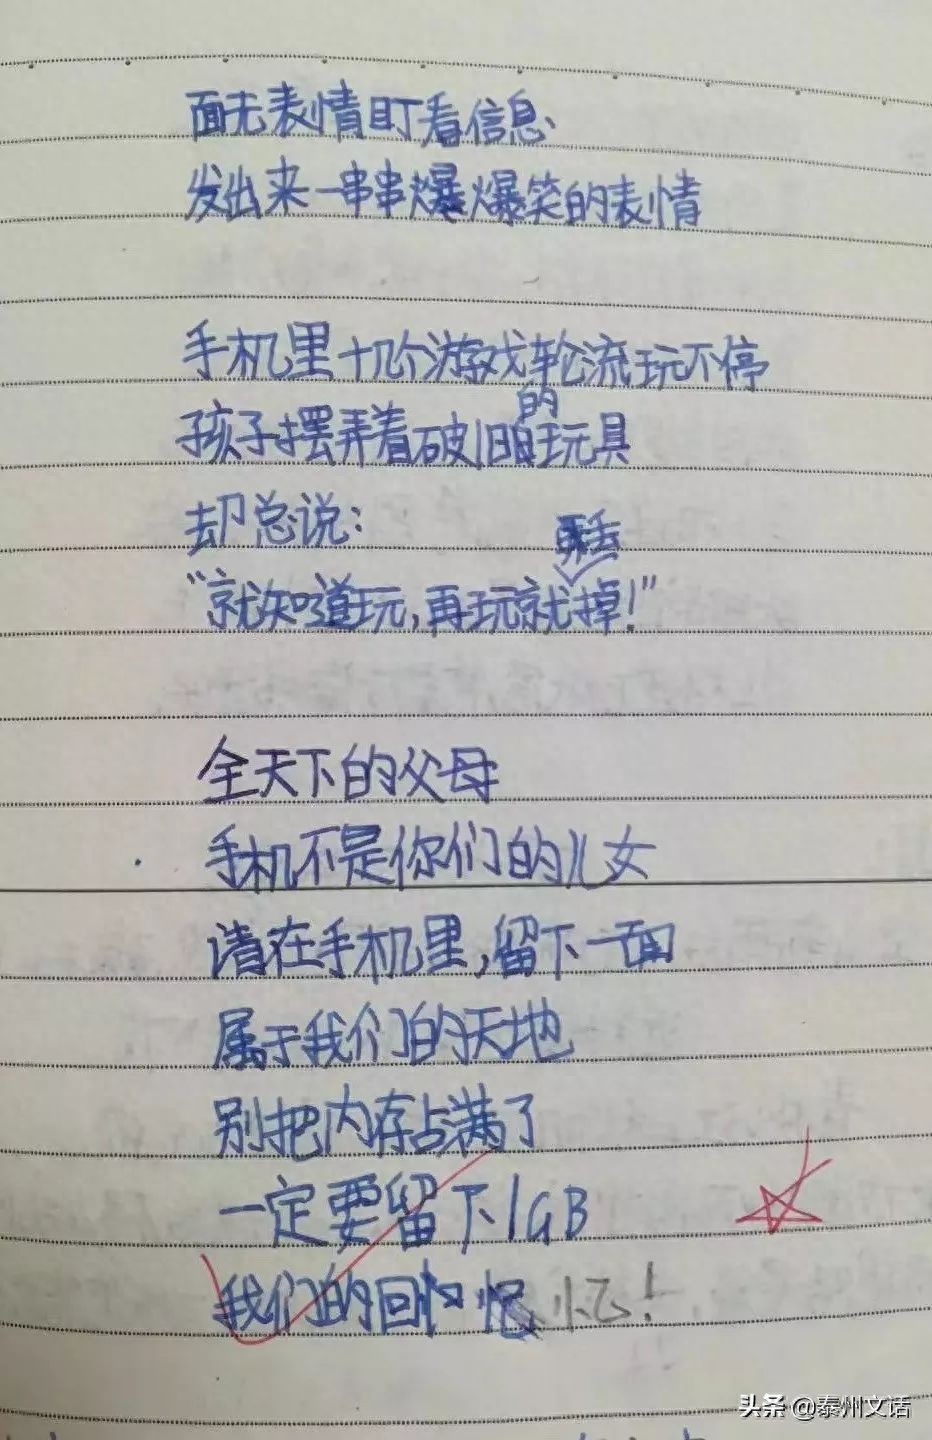 面无表情盯看信息
发出来一串串爆笑的表情
手机里十几个游戏轮流玩不停
孩子摆弄着破旧的玩具
却总说：
“就知道玩，再玩就丢掉！”
全天下的父母
手机不是你们的儿女
请在手机里，留下一面
属于我们的天地
别把内存占满了
一定要留下1GB
我们的回忆！
头条 @泰州文话